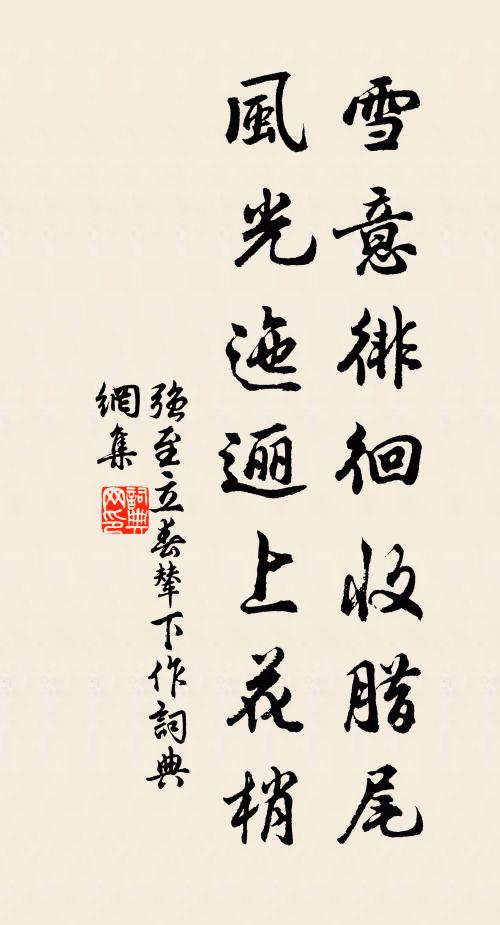 雪意徘徊收腊尾
風光迤逦上花梢
強至立春輦下作詞典
網集
詞典
网印